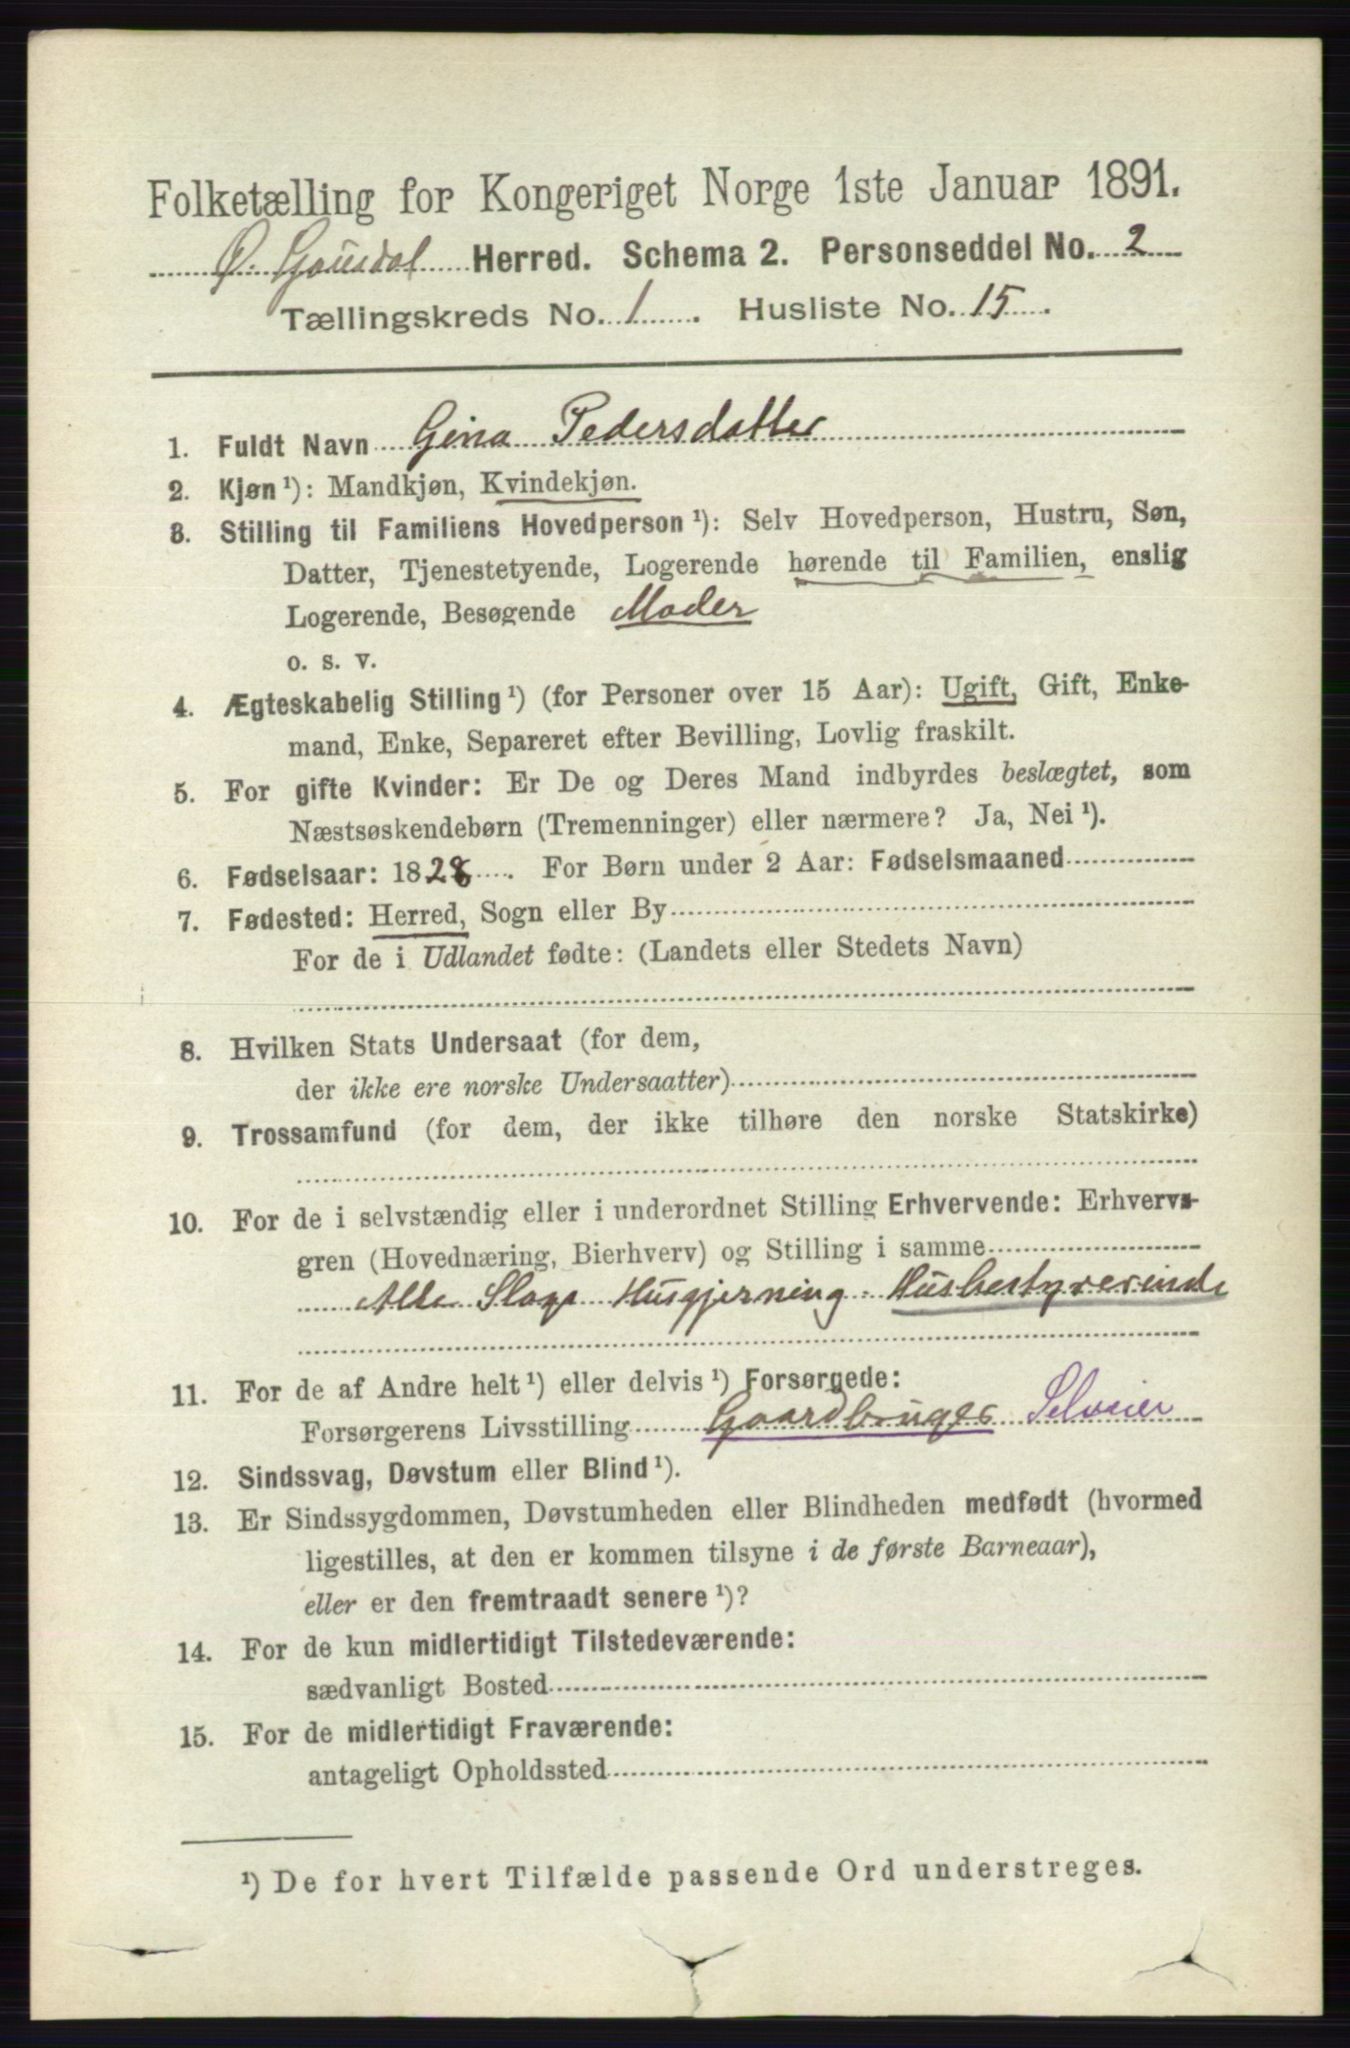 Folketælling for Kongeriget Norge 1ste Januar 1891.
Ø. Gausdal Herred. Schema 2. Personseddel No. 2
Tællingskreds No. 1. Husliste No. 15.
1. Fuldt Navn Gina Pedersdatter
2. Kjøn ¹): Mandkjøn, Kvindekjøn.
3. Stilling til Familiens Hovedperson ¹): Selv Hovedperson, Hustru, Søn,
Datter, Tjenestetyende, Logerende hørende til Familien, enslig
Logerende, Besøgende Moder
o. s. v.
4. Ægteskabelig Stilling ¹) (for Personer over 15 Aar): Ugift, Gift, Enke-
mand, Enke, Separeret efter Bevilling, Lovlig fraskilt.
5. For gifte Kvinder: Er De og Deres Mand indbyrdes beslægtet, som
Næstsøskendebørn (Tremenninger) eller nærmere? Ja, Nei ¹).
6. Fødselsaar: 1828. For Børn under 2 Aar: Fødselsmaaned
7. Fødested: Herred, Sogn eller By
For de i Udlandet fødte: (Landets eller Stedets Navn)
8. Hvilken Stats Undersaat (for dem,
der ikke ere norske Undersaatter)
9. Trossamfund (for dem, der ikke tilhøre den norske Statskirke)
10. For de i selvstændig eller i underordnet Stilling Erhvervende: Erhvervs-
gren (Hovednæring, Bierhverv) og Stilling i samme
Alle Slags Husgjerning. Husbestyrerinde
11. For de af Andre helt ¹) eller delvis ¹) Forsørgede:
Forsørgerens Livsstilling Gaardbruger Selveier
12. Sindssvag, Døvstum eller Blind ¹).
13. Er Sindssygdommen, Døvstumheden eller Blindheden medfødt (hvormed
ligestilles, at den er kommen tilsyne i de første Barneaar),
eller er den fremtraadt senere ¹)?
14. For de kun midlertidigt Tilstedeværende:
sædvanligt Bosted
15. For de midlertidigt Fraværende:
antageligt Opholdssted
¹) De for hvert Tilfælde passende Ord understreges.